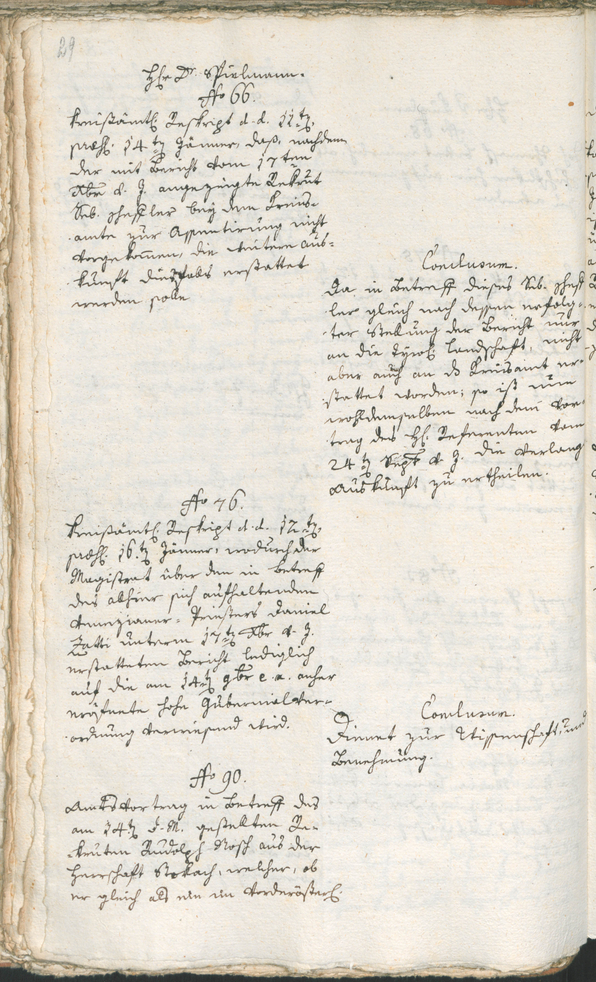 29
Hhr Dr. Spielmann.
No 66.
Kreisämtl. Reskript d. d. 11tn
praes. 14tn Jänner, daß, nachdem
der mit Bericht vom 17ten
Xbr v. J. angezeigte Rekrut
Seb. bey dem Kreis-
amte zur Assentirung nicht
vorgekommen, die weitere Aus-
kunft diesfals erstattet
werden solle
Conclusum.
Da in Betreff dieses Seb.
ler gleich nach dessen erfolg-
ter Stellung der Bericht nur
an die tyrol. Landschaft, nicht
aber auch an d. Kreisamt er-
stattet worden; so ist nun
wohldemselben nach dem Vor-
trag des H. Referenten vom
24tn Sept. v. J. die verlang
Auskunft zu ertheilen.
No 76.
Kreisämtl. Reskript d. d. 12tn
praes. 16tn Jänner, wodurch der
Magistrat über den in Betreff
des alhier sich aufhaltenden
Venezianer-Priesters Daniel
Zatti unterm 17tn Xbr v. J.
erstatteten Bericht lediglich
auf die am 14tn 9br e. a. anher
eröfnete hohe Gubernialver-
ordnung verwiesend wird.
Conclusum.
Dienet zur Wissenschaft, und
Benehmung.
No 90.
Amtsvortrag in Betreff des
am 14tn d. M. gestelten Re-
kruten Rudolph Rosch aus der
Herrschaft Stokach, welcher, ob
er gleich als ein im Vorderösterl.